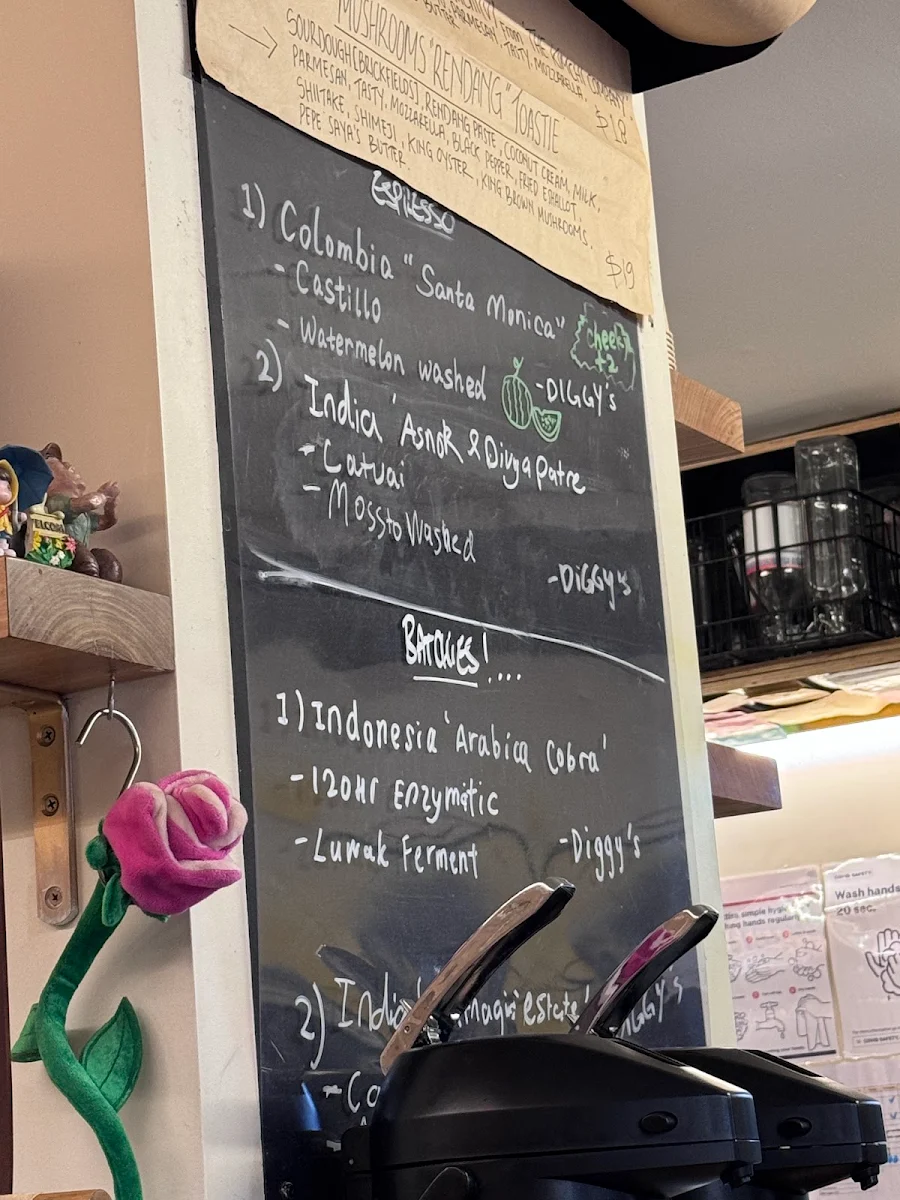 FROM THE BORELLI COMPANY
BUTTER, PARMESAN, TASTY, MOZZARELLA.
$18
→ MUSHROOMS "RENDANG" TOASTIE
SOURDOUGH[BRICKFIELDS], RENDANG PASTE, COCONUT CREAM, MILK,
PARMESAN, TASTY, MOZZARELLA, BLACK PEPPER, FRIED ESHALLOT,
SHIITAKE, SHIMEJI, KING OYSTER, KING BROWN MUSHROOMS.
PEPE SAYA'S BUTTER.
$19
ESPRESSO
1) Colombia "Santa Monica"
- Castillo
cheeky
+2
- Watermelon washed
-DIGGY's
2) India 'Asnok & Divya Patre
- Catuai
- Mossto Washed
-DiGGY's
BATCHES!....
1) Indonesia 'Arabica Cobra'
- 120Hr Enzymatic
- Luwak Ferment
-Diggy's
2) India
estate'
- Co
WELCOME
Wash hands
20 sec.